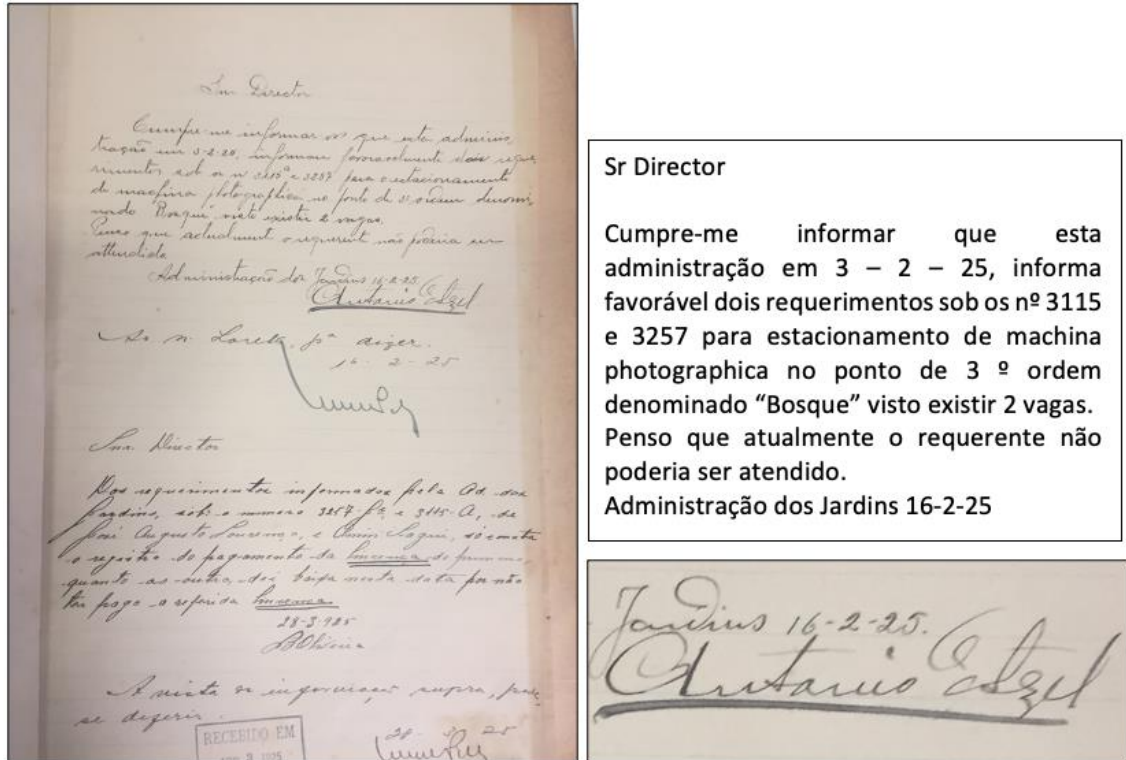 Snr Director
Cumpre-me informar vos que esta adminis,
tração em 3-2-25, informou favoravelmente dois reque,
rimentos sob os nº 3115 e 3257 para estacionamento
de machina photographica no ponto de 3ª ordem denomi,
nado "Bosque" visto existir 2 vagas.
Penso que actualmente o requerente não poderia ser
attendido.
Administração dos Jardins 16-2-25.
Antonio Etzel
Ao sr. Loreto, pª dizer.
16-2-25
Snr. Director
Dos requerimentos informados pela Ad. dos
Jardins, sob o numero 3257-  e 3115-A, de
José Augusto Lourenço, e       só consta
o registro do pagamento da licença do primeiro,
quanto ao outro, dei baixa nesta data por não
ter pago a referida licença
28-3-925
BOliveira
A vista da informação supra, pode
se deferir.
28 - 3 - 25
RECEBIDO EM
1925
Sr Director
Cumpre-me informar que esta
administração em 3 – 2 – 25, informa
favorável dois requerimentos sob os nº 3115
e 3257 para estacionamento de machina
photographica no ponto de 3 º ordem
denominado “Bosque” visto existir 2 vagas.
Penso que atualmente o requerente não
poderia ser atendido.
Administração dos Jardins 16-2-25
Jardins 16-2-25.
Antonio Etzel